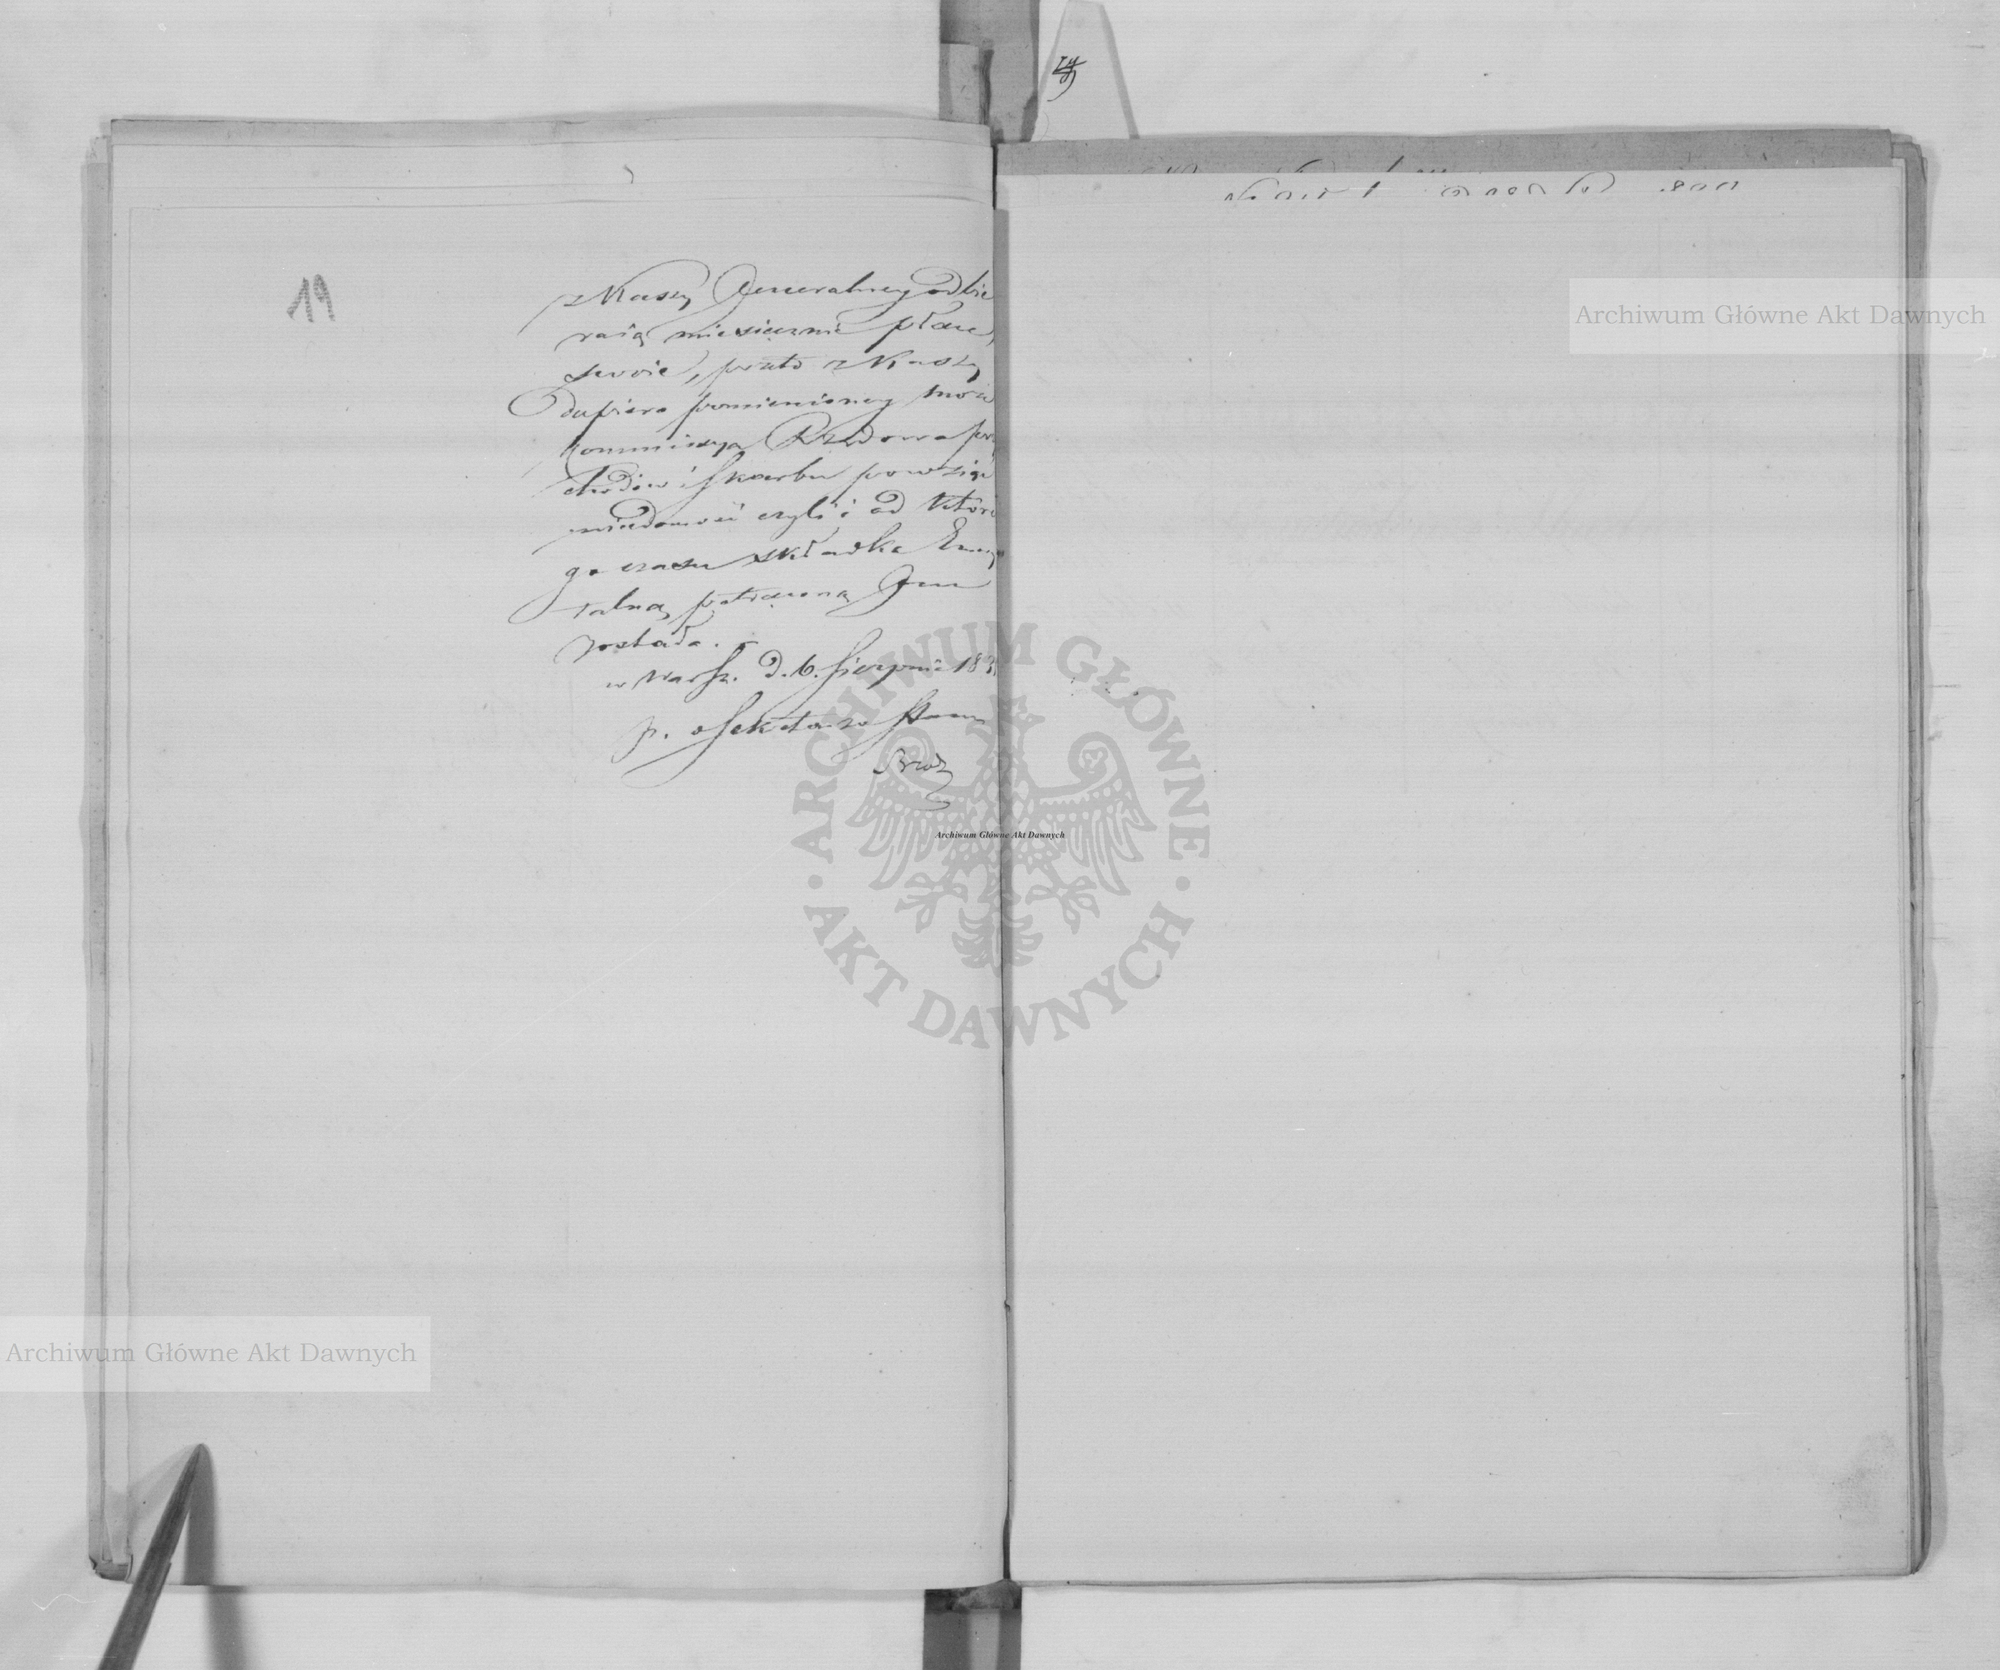 19
z Kassy Generalney odbie
raią miesięcznie płace
swoie, przeto z Kassy
dopiero pomienioney może
Kommissya Rządowa Przy
chodów i Skarbu powziąć
wiadomość czyli i od któré
go czasu składka Emery
talna potrącona Im
została.
w Warsz. d. 6. Sierpnia 18
p. o Sekretarza Stanu
Archiwum Główne Akt Dawnych
ARCHIWUM GŁÓWNE AKT DAWNYCH
Archiwum Główne Akt Dawnych
Archiwum Główne Akt Dawnych